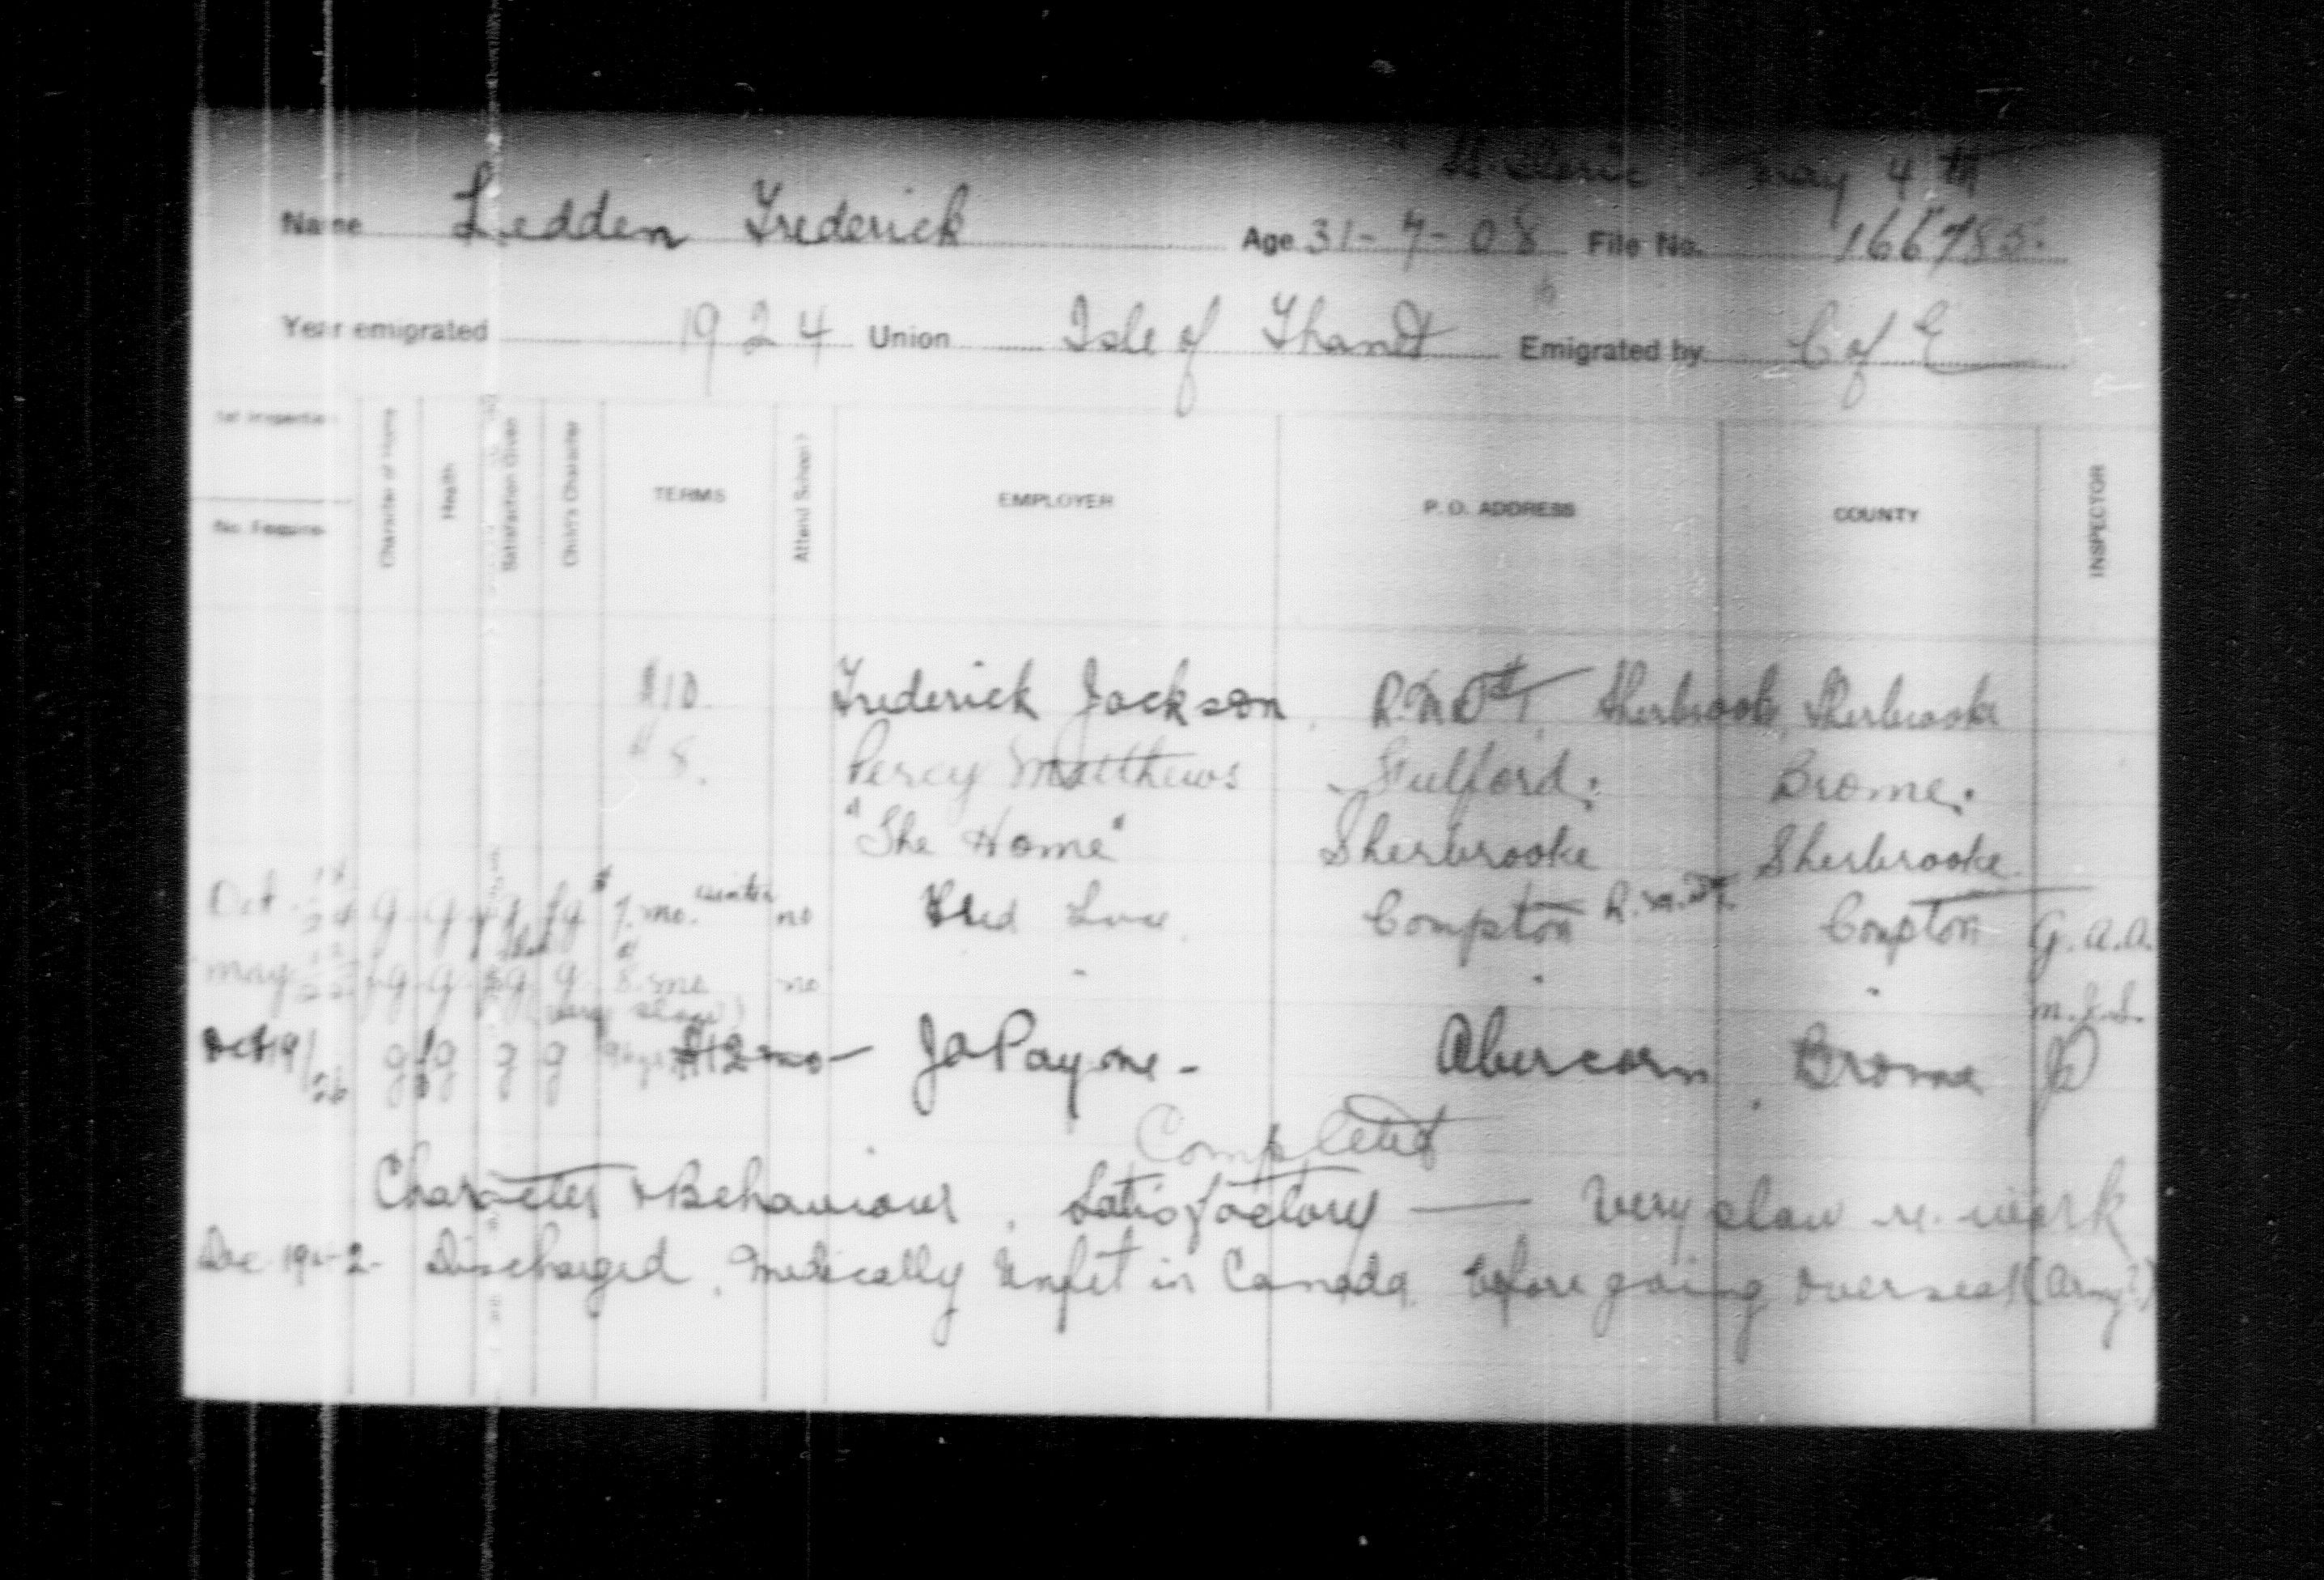 May 4th
Name Ledden Frederick Age 31-7-08 File No. 166785.
Year emigrated 1924 Union Isle of Thanet Emigrated by C of E
1st Inspection Character of Home Health Satisfaction Given Child's Character TERMS Attend School? EMPLOYER P.O. ADDRESS COUNTY INSPECTOR
No. Require-
$10. Frederick Jackson, Sherbrooke, Sherbrooke
$8. Percy Matthews Fulford. Brome.
"The Home" Sherbrooke Sherbrooke.
Oct g g fg fg $7. mo. winter no Fred Compton Compton G.A.A.
May fg g g 8. mo. no
(very slow)
Oct 19/26 g fg g g $12 mo - J A Payne - Abercorn, Brome
Completed
Character & Behaviour, Satisfactory — Very slow re. work
Discharged, Medically Unfit in Canada before going Overseas (Army?)